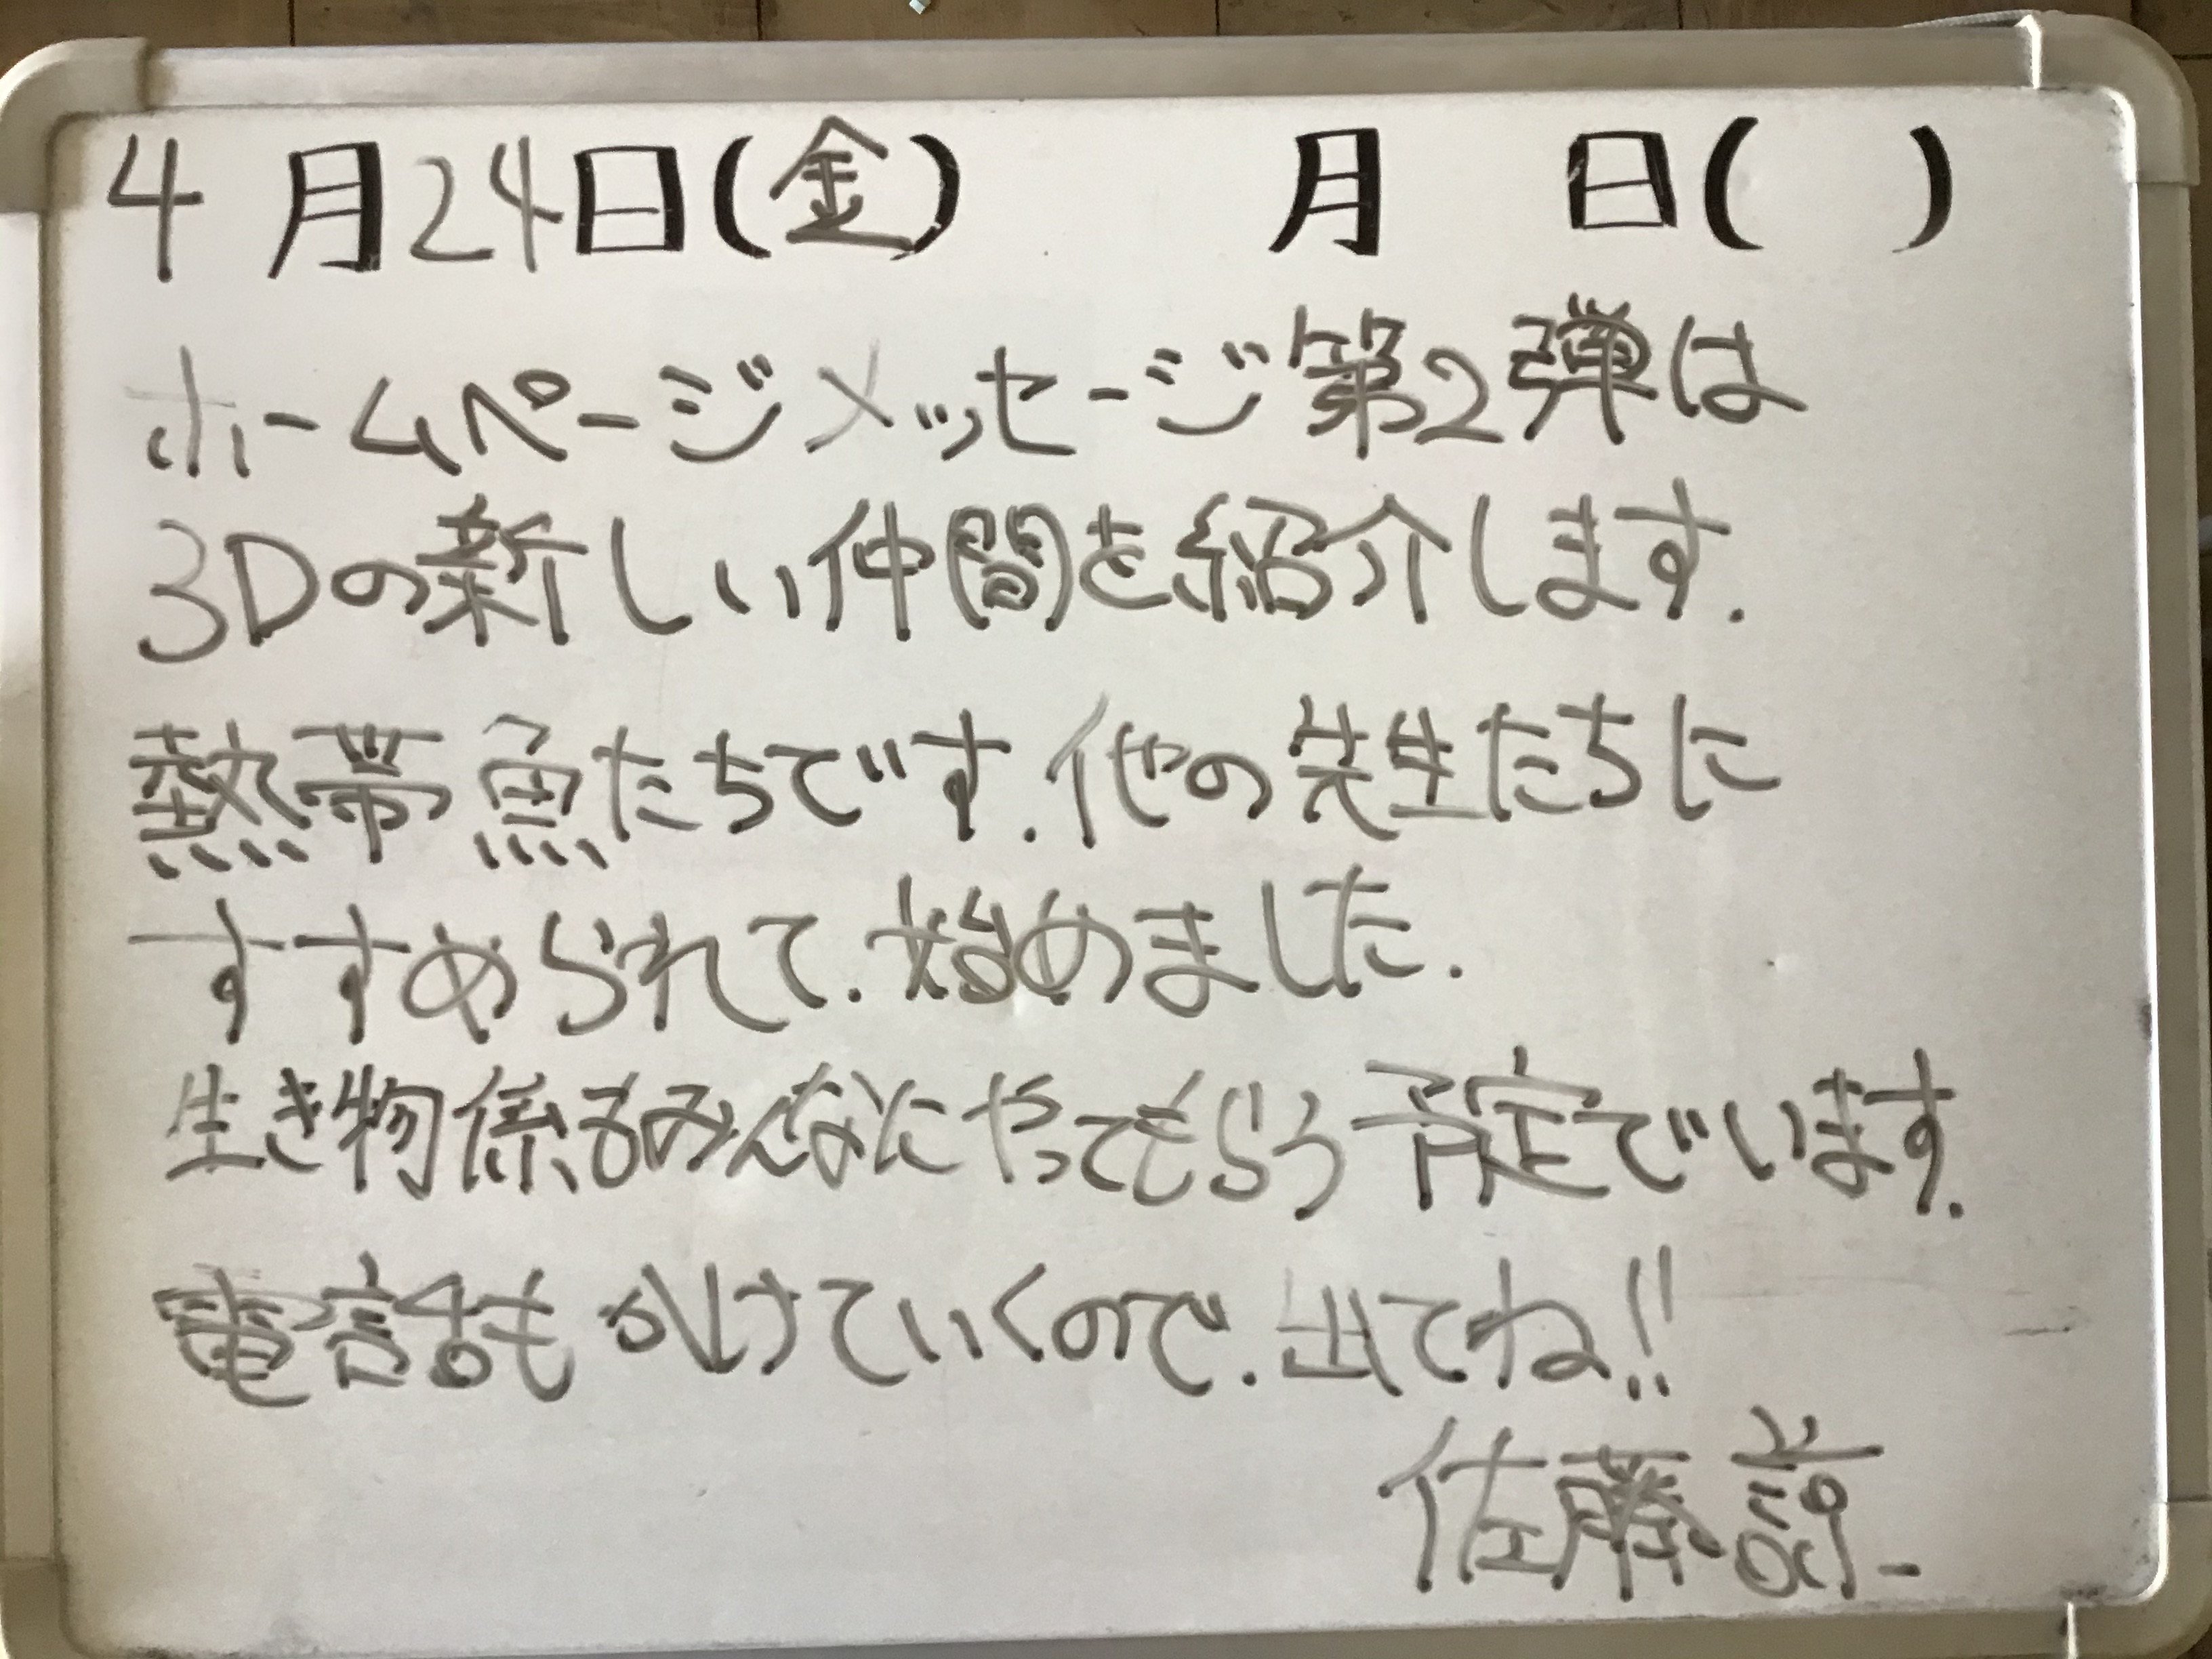 4月24日(金) 月 日( )
ホームページメッセージ第2弾は
3Dの新しい仲間を紹介します.
熱帯魚たちです.他の先生たちに
すすめられて.始めました.
生き物係るみんなにやってもらう予定でいます.
電話もかけていくので.出てね!!
佐藤